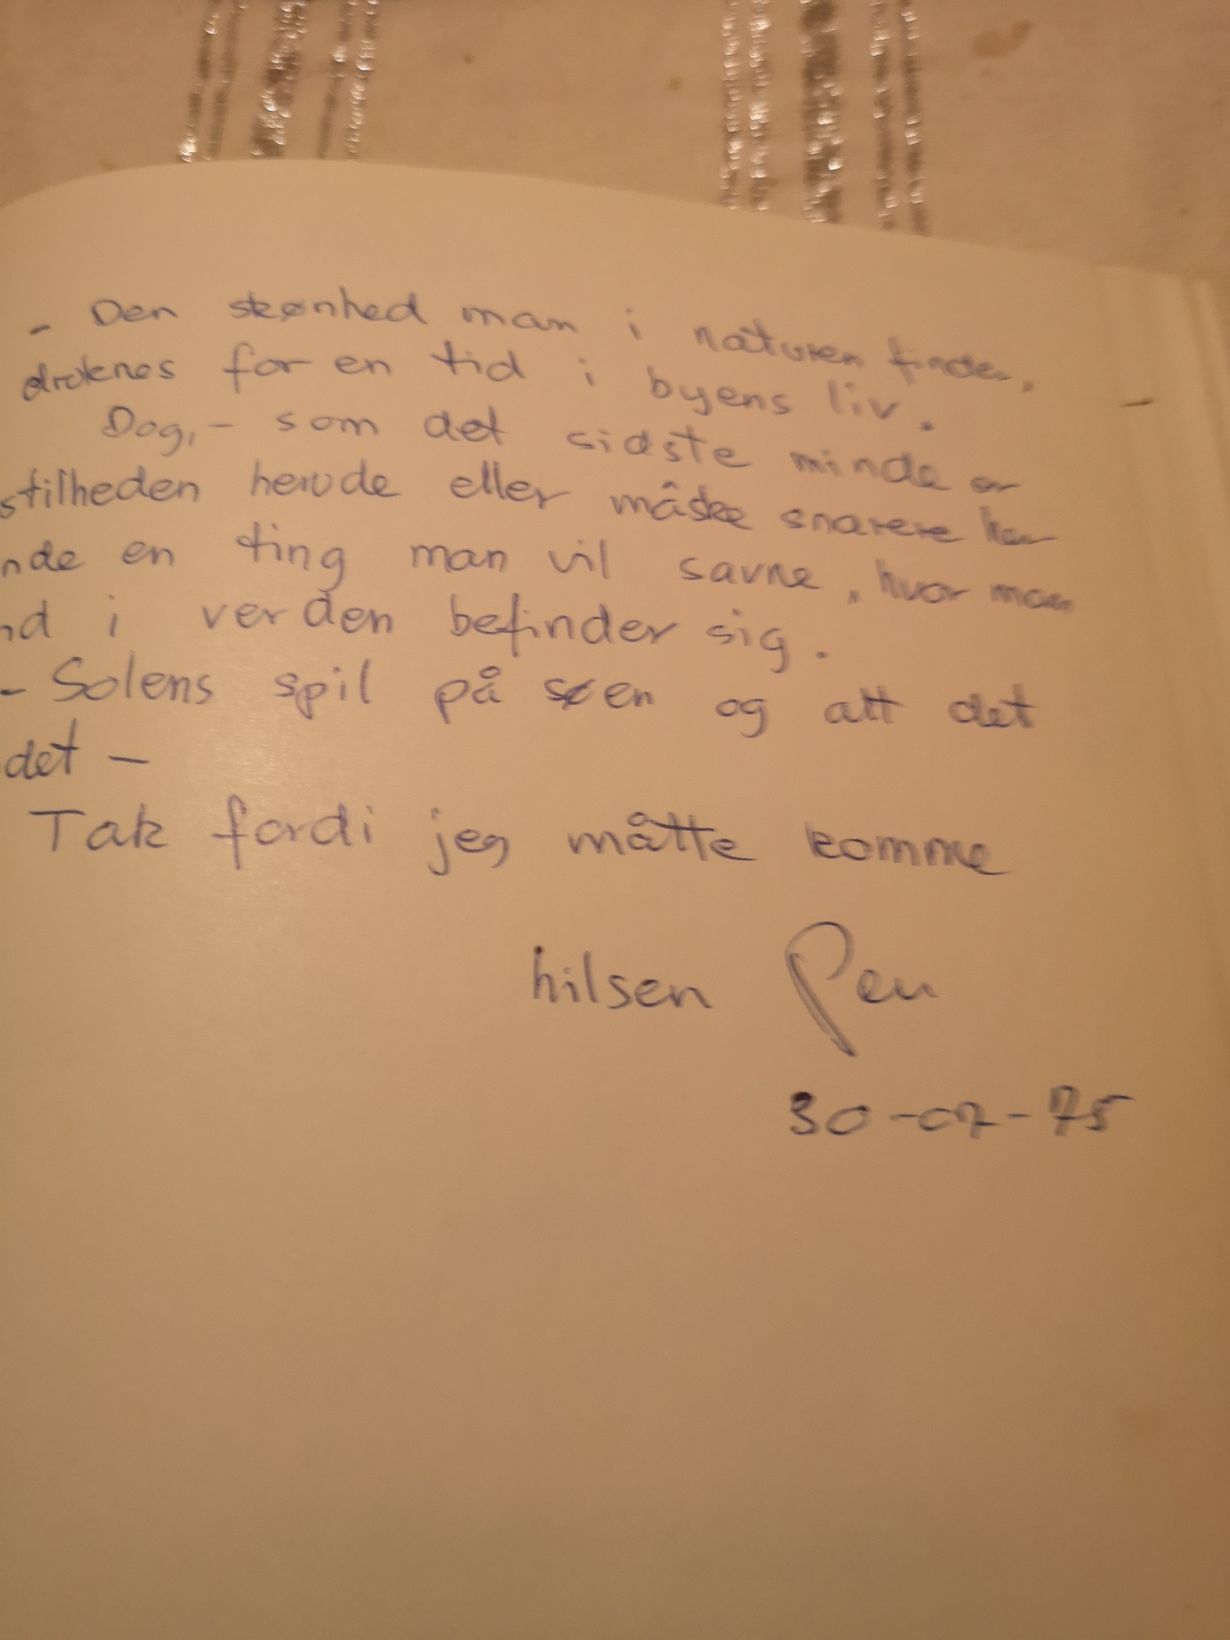 - Den skønhed man i naturen finder,
druknes for en tid i byens liv.
Dog, - som det sidste minde er
stilheden herude eller måske snarere
nde en ting man vil savne, hvor man
nd i verden befinder sig.
- Solens spil på søen og alt det
det -
Tak fordi jeg måtte komme
hilsen
30-07-75